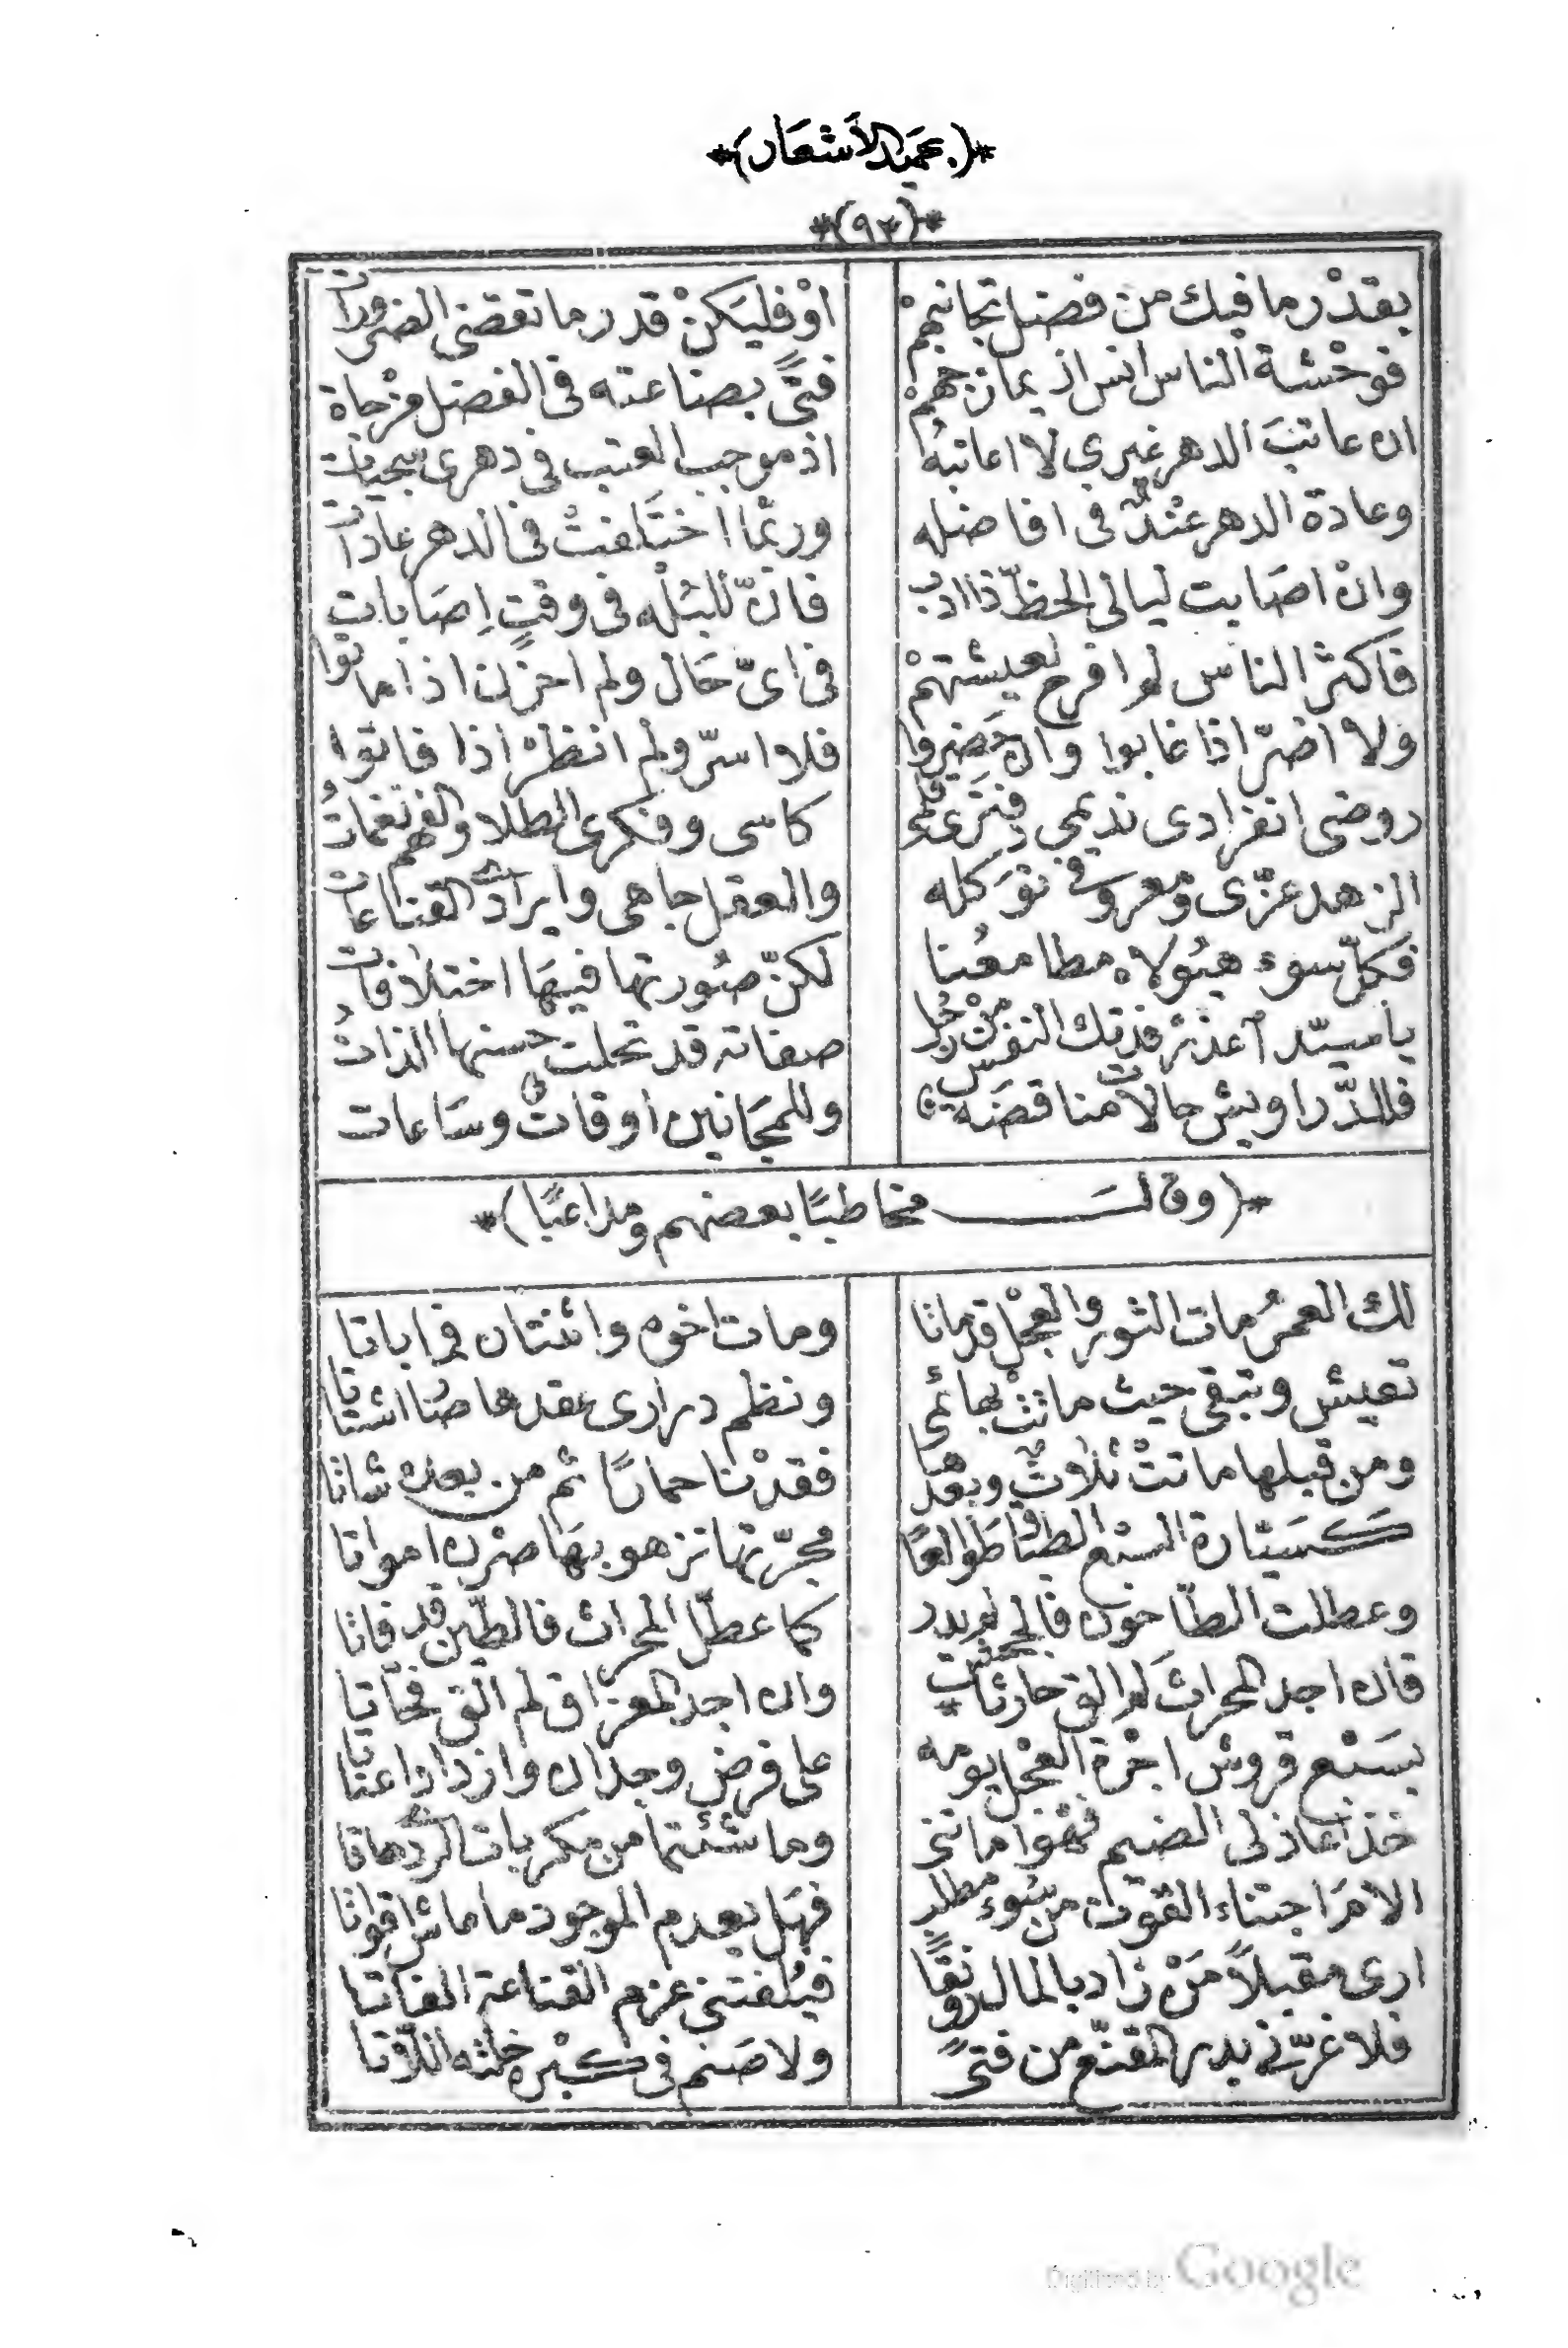 *(عميد الأشعار)*
*(٩٣)*
بقدْر ما فيك من فضل تجانبهمْ اوْ فليَكنْ قدر ما تقضى الضرورات
فوحْشة الناس انس اذ يمازجهمْ فتىً بضاعته فى الفضل مزْجاة
ان عاتبَ الدهر غيري لا اعاتبهُ اذ موجب العتب فى دهرى سجيات
وعادة الدهر عنْدى فى افاضله وربّما اختَلفتْ فى الدهر عادات
وانْ اصَابت ليالى الحظّ ذا ادب فانّ للبُلْه فى وقتٍ اِصَابات
فاكثر الناس لم افرح لعيشتهمْ فى اىّ حَال ولم احزن اذا ماتوا
ولا اضرّ اذا غابوا وان حَضروا فلا اسرّ ولم انظرْ اذا فاتوا
روضى انفرادى نديمى دفتَرى قلمى كاسى وفكرى الطلا والفهم نغماتُ
الزهد عزّى ومعروفى توَكله والعقل جاهى وايرادى القناعات
فكلّ سوء هيُولاه مطامعُنا لكنّ صُورتها فيهَا اختلافات
ياسيّد اعذرْ فدتك النفس منْ رجل صفاته قد تحلت حسنها الذاتُ
فللدّراويش حالات مناقضَة وللمجَانين اوقاتٌ وسَاعات
*(وقالَ مخاطبًا بعضهم ومداعبًا)*
لك العمرُ مات الثور والعجْل قد ماتا ومات اخوه واثنتان قراباتا
تعيش وتبقى حيث ماتتْ بهائمى ونظم درارى عقدها صار اشتاتا
ومن قبلها ماتتْ ثلاثٌ وبعْدها فقدْنا حمارًا ثم من بعده شاتا
كسَيّارة السبْع الطباق طَوالعًا مجرّتها تزهو بهَا صرْن امواتا
وعطلت الطّاحون فالحب لم يدر كما عطّل المحراث فالطّين قد فاتا
فان اجد المحراثَ لم الق حارثا وان اجد المعزاق لم القَ فحّاتا
بسَبْع قروش اجْرة العجْل يوْمه على فرض وجدان وازداد اعناتا
الامَ اجتناء القوْت من سُوء مطلب فهَل يعدم الموجود ما عاش اقواتا
ارى مقبلاً مَنْ زاد بالمال رونقًا فيُلفتنى عزم القناعة الفاتا
فلا غرّنى بدر المقنّع من فتىً ولا صَنم فى كبْره خلته اللاتا